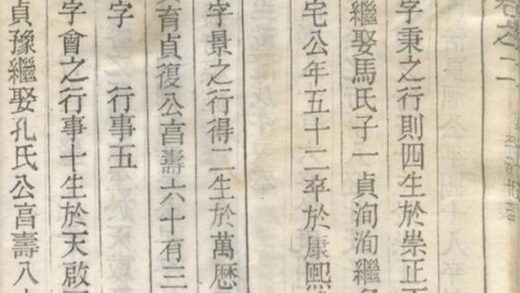 卷之二
字秉之行則四生於崇正
繼娶馬氏子一貞洵洵繼
宅公年五十二卒於康熙
字景之行得二生於萬曆
育貞復公亯壽六十有三
字 行事五
字會之行事十生於天啟
貞豫繼娶孔氏公亯壽八